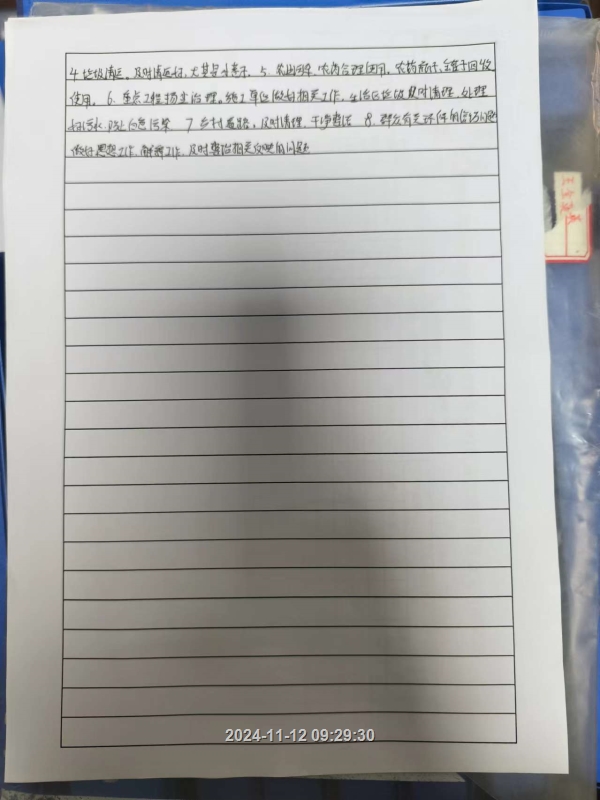 4 垃圾清运。及时清运好，尤其是 5、农业 农药合理使用，农药 回收
使用。6、重点工程扬尘治理。施工单位做好相关工作，生活区垃圾及时清理，处理
好污水，防止 污染 7 乡村道路，及时清理，干净整洁 8、群众有关环保的信访问题
做好思想工作，解释工作，及时整治相关反映的问题
2024-11-12 09:29:30